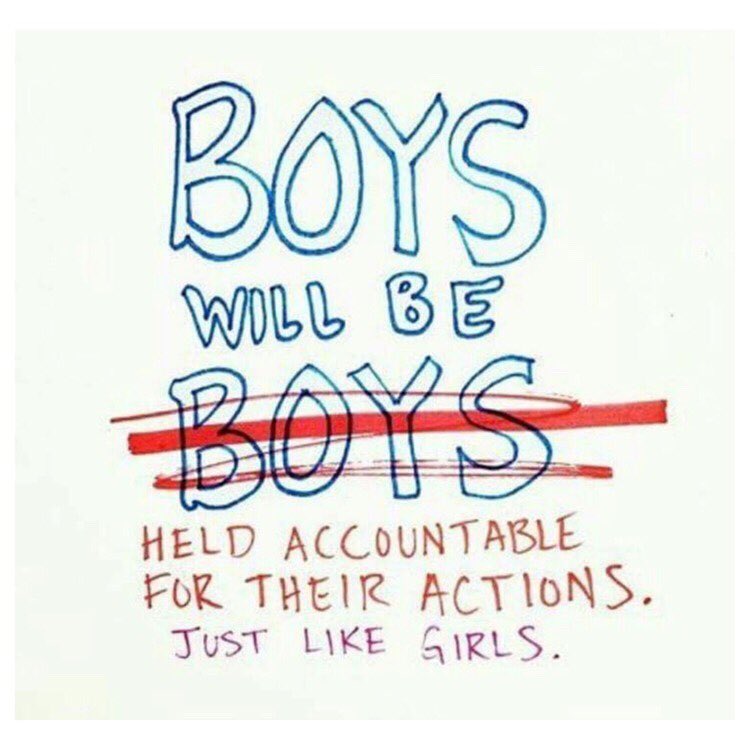 BOYS
WILL BE
BOYS
HELD ACCOUNTABLE
FOR THEIR ACTIONS.
JUST LIKE GIRLS.